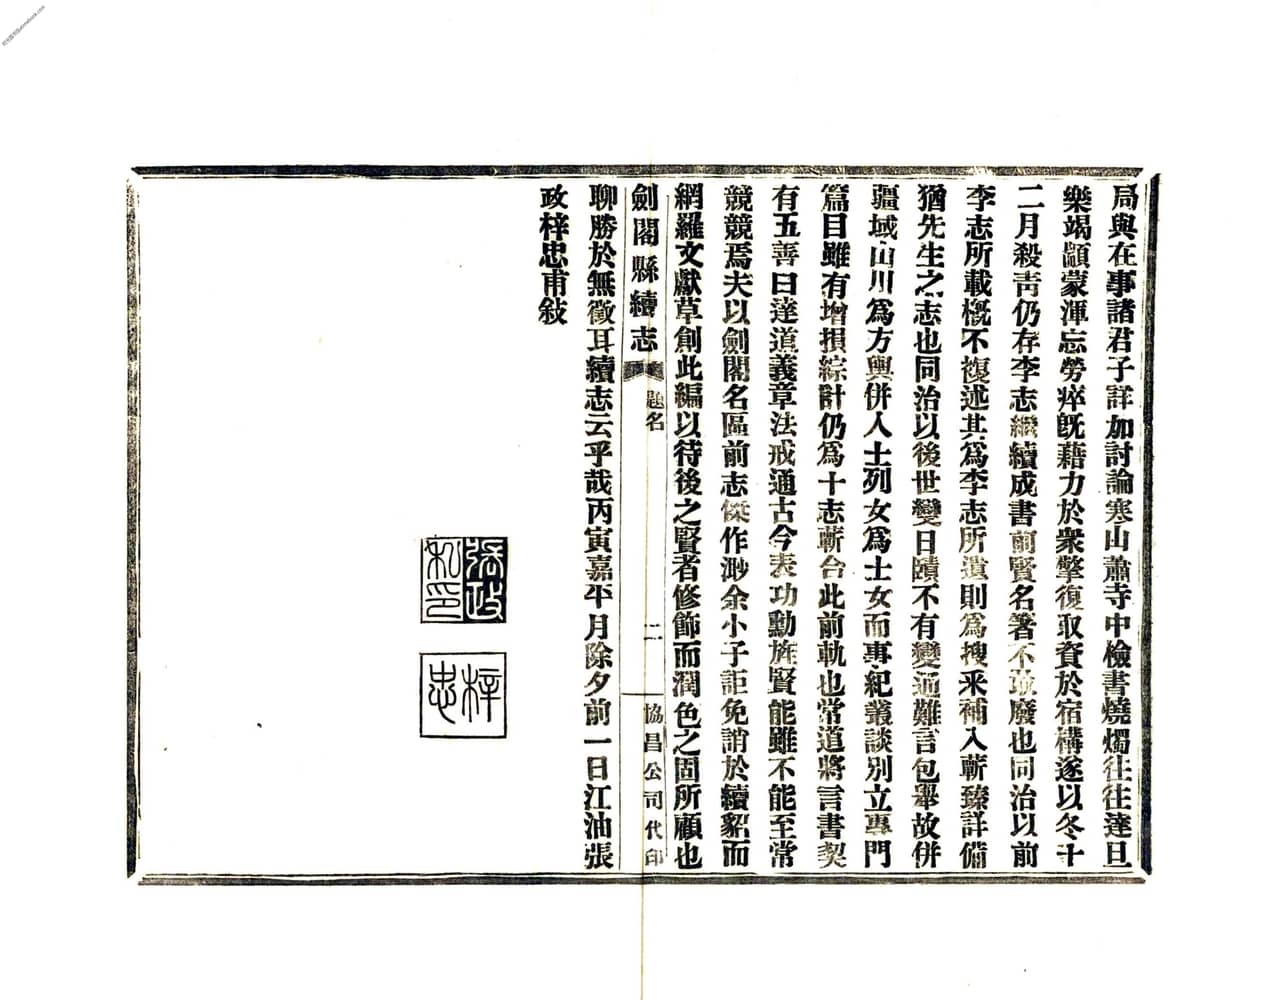 局與在事諸君子詳加討論寒山蕭寺中檢書燒燭往往達旦
樂竭顓蒙渾忘勞瘁旣藉力於衆擎復取資於宿構遂以冬十
二月殺靑仍存李志繼續成書前賢名箸不並廢也同治以前
李志所載槪不複述其爲李志所遺則爲搜釆補入蘄臻詳備
猶先生之志也同治以後世變日賾不有變通難言包舉故併
疆域山川爲方輿併人士列女爲士女而事紀叢談別立專門
篇目雖有增損綜計仍爲十志蘄合此前軌也常道將言書契
有五善曰達道義章法戒通古今表功勳旌賢能雖不能至常
競競焉夫以劍閣名區前志傑作渺余小子詎免誚於續貂而
網羅文獻草創此編以待後之賢者修飾而潤色之固所願也
劍閣縣續志
題名
二
協昌公司代印
聊勝於無徵耳續志云乎哉丙寅嘉平月除夕前一日江油張
政梓忠甫敍
張政私印
梓忠